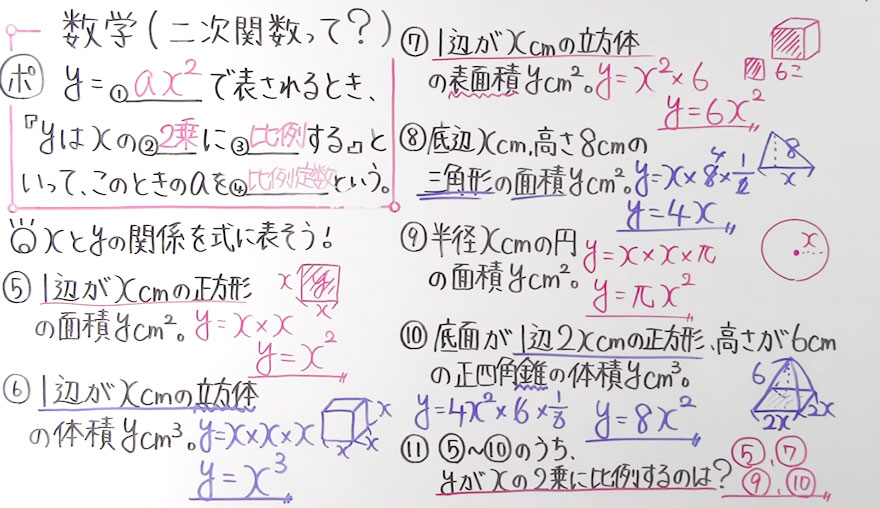 数学(二次関数って?)
ポ y=①ax²で表されるとき、
『yはxの②2乗に③比例する』と
いって、このときのaを④比例定数という。
xとyの関係を式に表そう!
⑤ 1辺がxcmの正方形
の面積ycm²。y=x×x
y=x²
x y x
⑥ 1辺がxcmの立方体
の体積ycm³。y=x×x×x
y=x³
x x x
⑦ 1辺がxcmの立方体
の表面積ycm²。y=x²×6
6コ
y=6x²
⑧ 底辺xcm,高さ8cmの
三角形の面積ycm²。y=x×8×1/2
4
y=4x
8
x
⑨ 半径xcmの円
の面積ycm²。
y=x×x×π
y=πx²
x
⑩ 底面が1辺2xcmの正方形、高さが6cm
の正四角錐の体積ycm³。
y=4x²×6×1/3 y=8x²
6
2x 2x
⑪ ⑤~⑩のうち、
yがxの2乗に比例するのは?
⑤、⑦
⑨、⑩